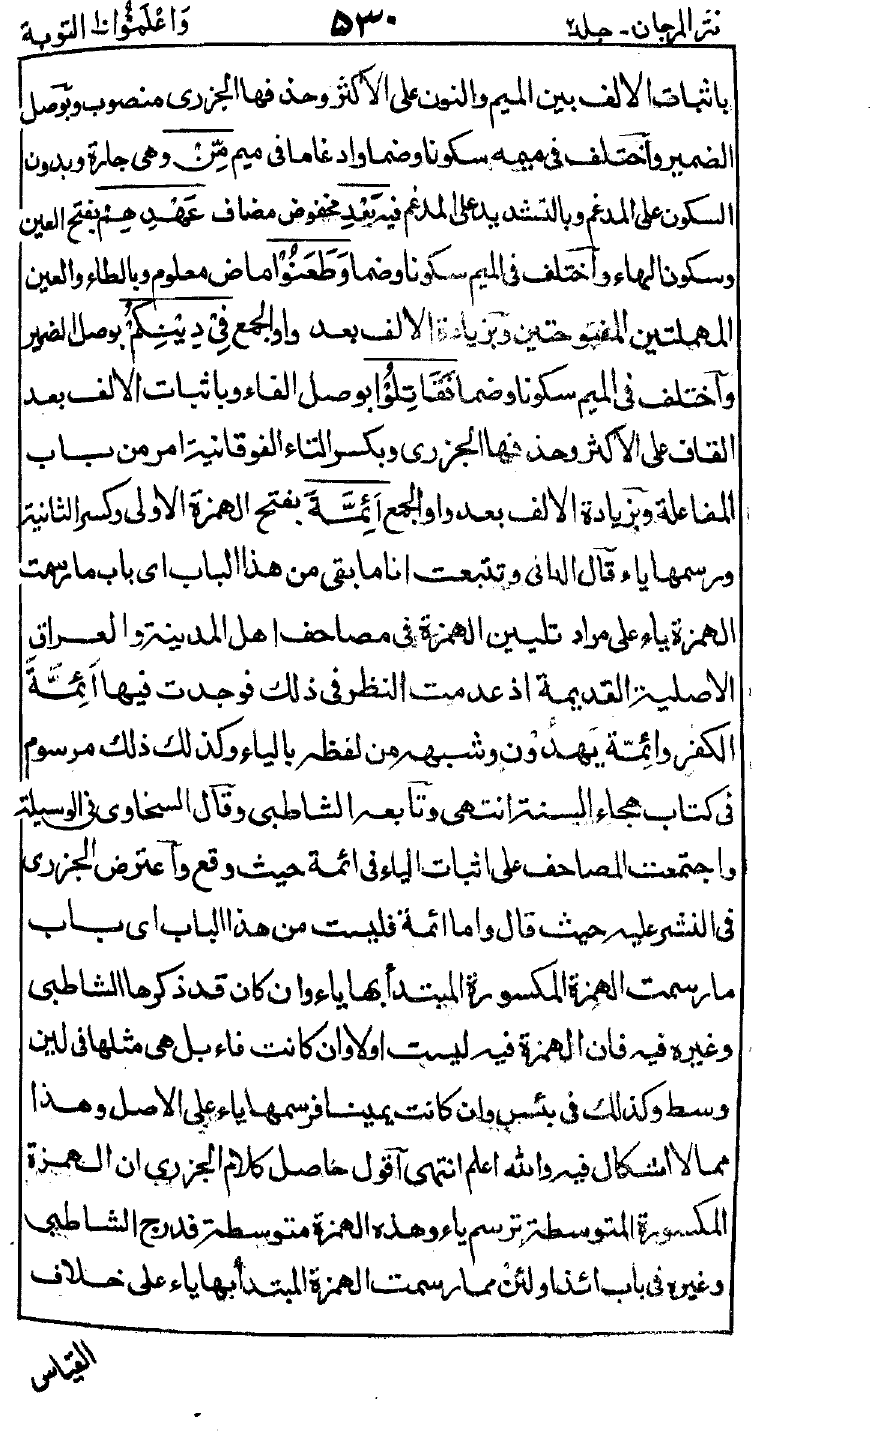 نثر المرجان - جلد٢ ٥٣٠ وَاعْلَمُوْا ١٠ التوبة
باثبات الالف بين الميم والنون على الاكثر وحذفها الجزرى منصوب وبوصل
الضمير وآختلف فى ميمه سكونا وضما وادغاما فى ميم مِّنْ وهى جارة وبدون
السكون على المدغم وبالتشديد على المدغم فيه بَعْدِ مخفوض مضاف عَهْدِهِمْ بفتح العين
وسكون الهاء وآختلف فى الميم سكونا وضما وَطَعَنُوْا ماض معلوم وبالطاء والعين
المهملتين المفتوحتين وبزيادة الالف بعد واو الجمع فِيْ دِيْنِكُمْ بوصل الضمير
وآختلف فى الميم سكونا وضما فَقَاتِلُوْا بوصل الفاء وباثبات الالف بعد
القاف على الاكثر وحذفها الجزرى وبكسر التاء الفوقانية امر من باب
المفاعلة وبزيادة الالف بعد واو الجمع اَئِمَّةَ بفتح الهمزة الاولى وكسر الثانية
ورسمها ياء قال الدانى وتتبعت انا ما بقى من هذا الباب اى باب ما رسمت
الهمزة ياء على مراد تليين الهمزة فى مصاحف اهل المدينة والعراق
الاصلية القديمة اذ عدمت النظر فى ذلك فوجدت فيها اَئِمَّةَ
الكفر وائِمّة يَهدُوْن وشبهه من لفظه بالياء وكذلك ذلك مرسوم
فى كتاب هجاء السنة انتهى وتابعه الشاطبى وقال السخاوى فى الوسيلة
واجتمعت المصاحف على اثبات الياء فى ائمة حيث وقع وآعترض الجزرى
فى النشر عليه حيث قال واما ائمة فليست من هذا الباب اى باب
ما رسمت الهمزة المكسورة المبتدأ بها ياء وان كان قد ذكرها الشاطبى
وغيره فيه فان الهمزة فيه ليست اولا وان كانت فاء بل هى مثلها فى لين
وسط وكذلك فى بئس وان كانت يمينا فرسمها ياء على الاصل وهذا
مما لا اشكال فيه والله اعلم انتهى آقول حاصل كلام الجزرى ان الهمزة
المكسورة المتوسطة ترسم ياء وهذه الهمزة متوسطة فدرج الشاطبى
وغيره فى باب ائذا ولئن مما رسمت الهمزة المبتدأ بها ياء على خلاف
القياس